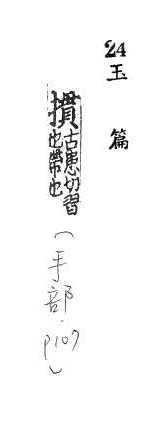 24
玉篇
摜古患切習也帶也
(手部.P107)